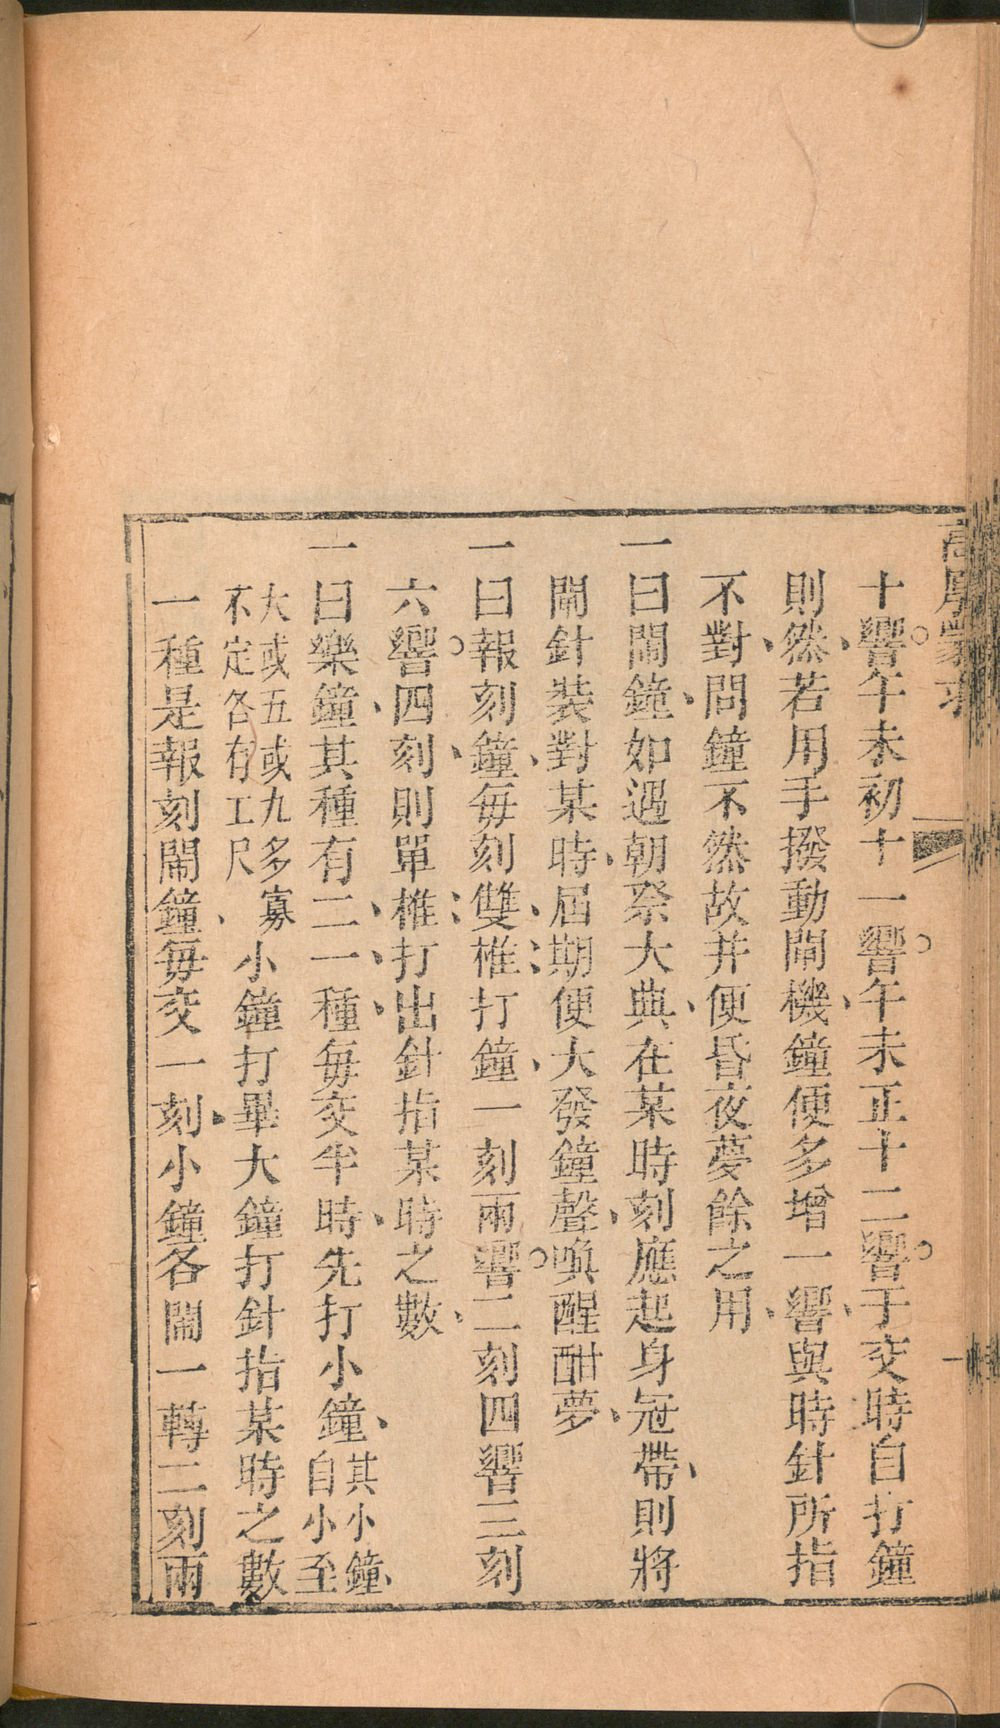 十響午未初十一響午未正十二響于交時自打鐘
則然若用手撥動閘機鐘便多增一響與時針所指
不對問鐘不然故并便昏夜夢餘之用
一曰鬧鐘如遇朝祭大典在某時刻應起身冠帶則將
鬧針裝對某時屆期便大發鐘聲喚醒酣夢
一曰報刻鐘每刻雙椎打鐘一刻兩響二刻四響三刻
六響四刻則單椎打出針指某時之數
一曰樂鐘其種有二一種每交半時先打小鐘其小鐘自小至
大或五或九多寡不定各有工尺小鐘打畢大鐘打針指某時之數
一種是報刻鬧鐘每交一刻小鐘各鬧一轉二刻兩